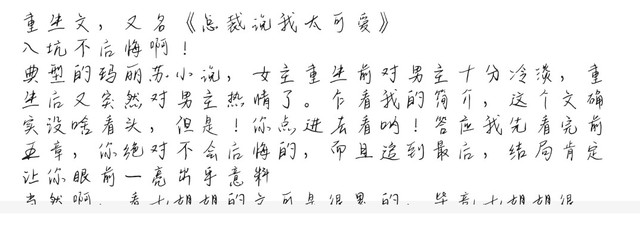 重生文，又名《总裁说我太可爱》
入坑不后悔啊！
典型的玛丽苏小说，女主重生前对男主十分冷淡，重
生后又突然对男主热情了。乍看我的简介，这个文确
实没啥看头，但是！你点进去看哟！答应我先看完前
五章，你绝对不会后悔的，而且追到最后，结局肯定
让你眼前一亮出乎意料
当然啊，看七胡胡的文可是很累的，毕竟七胡胡很